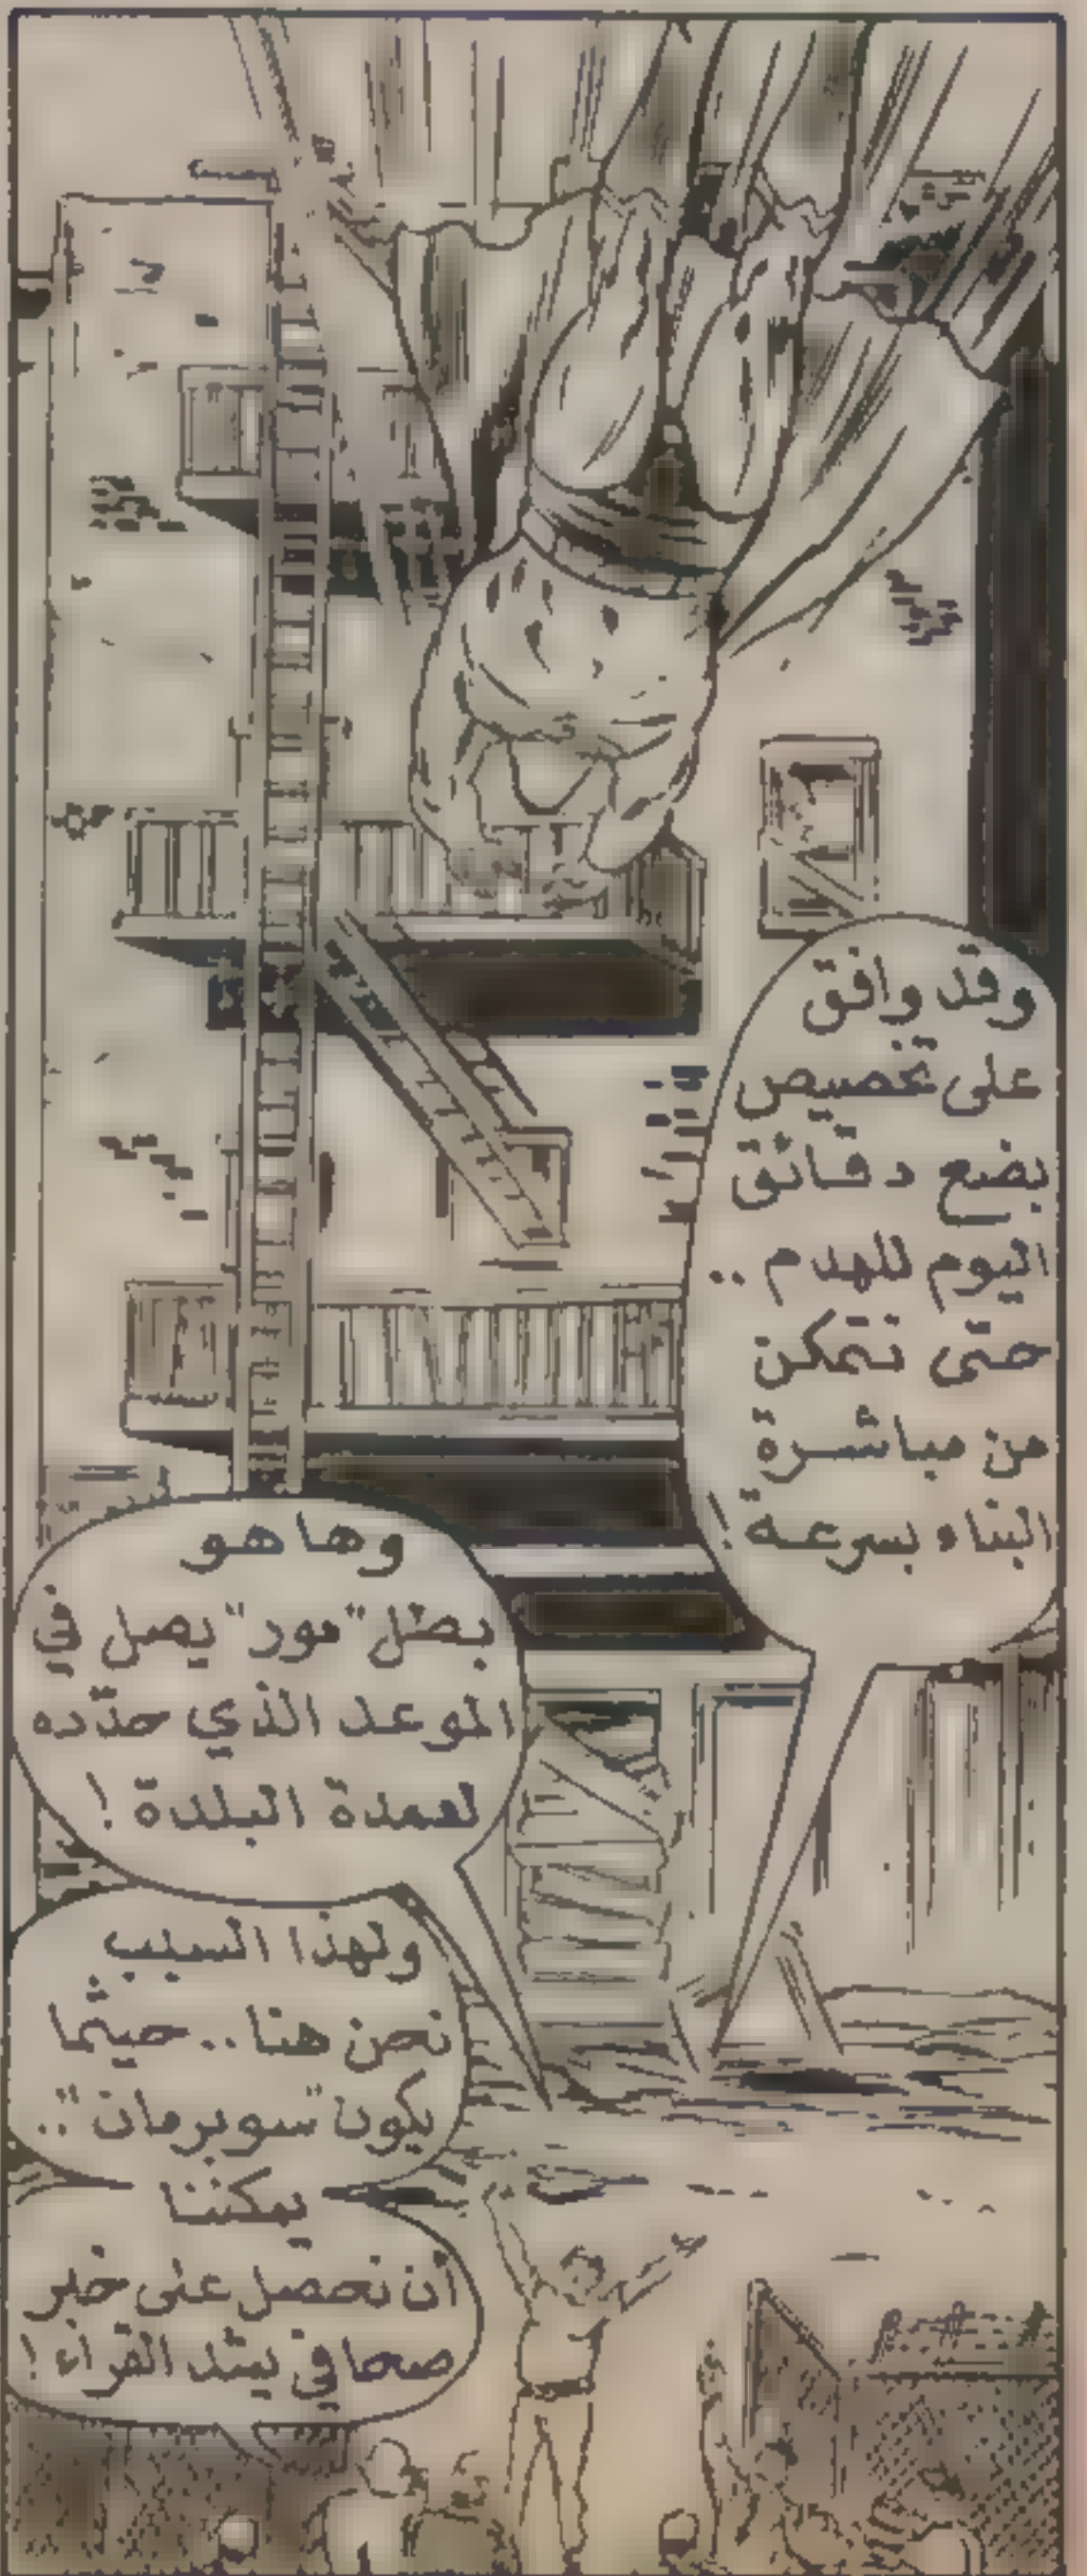 وقد وافق
على تخصيص
بضع دقائق
اليوم للهدم ..
حتى نتمكن
من مباشرة
البناء بسرعة !
وها هو
بطل "نور" يصل في
الموعد الذي حدّده
لعمدة البلدة !
ولهذا السبب
نحن هنا .. حيثما
يكون "سوبرمان" ..
يمكننا
أن نحصل على خبر
صحافي يشد القراء !